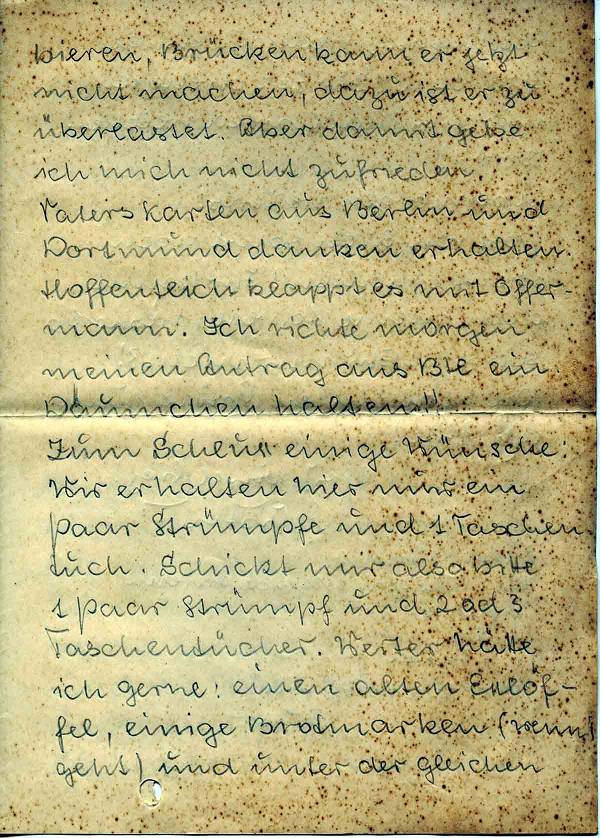 bieren, Brücken kann er jetzt
nicht machen, dazu ist er zu
überlastet. Aber damit gebe
ich mich nicht zufrieden.
Vaters Karten aus Berlin und
Dortmund danken erhalten.
Hoffentlich klappt es mit Offer-
mann. Ich richte morgen
meinen Antrag aus Btl ein.
Däumchen halten!!
Zum Schluß einige Wünsche:
Wir erhalten hier nur ein
paar Strümpfe und 1 Taschen
tuch. Schickt mir also bitte
1 paar Strümpf und 2 od 3
Taschentücher. Weiter hätte
ich gerne: einen alten Eßlöf-
fel, einige Brotmarken (wenns
geht) und unter der gleichen